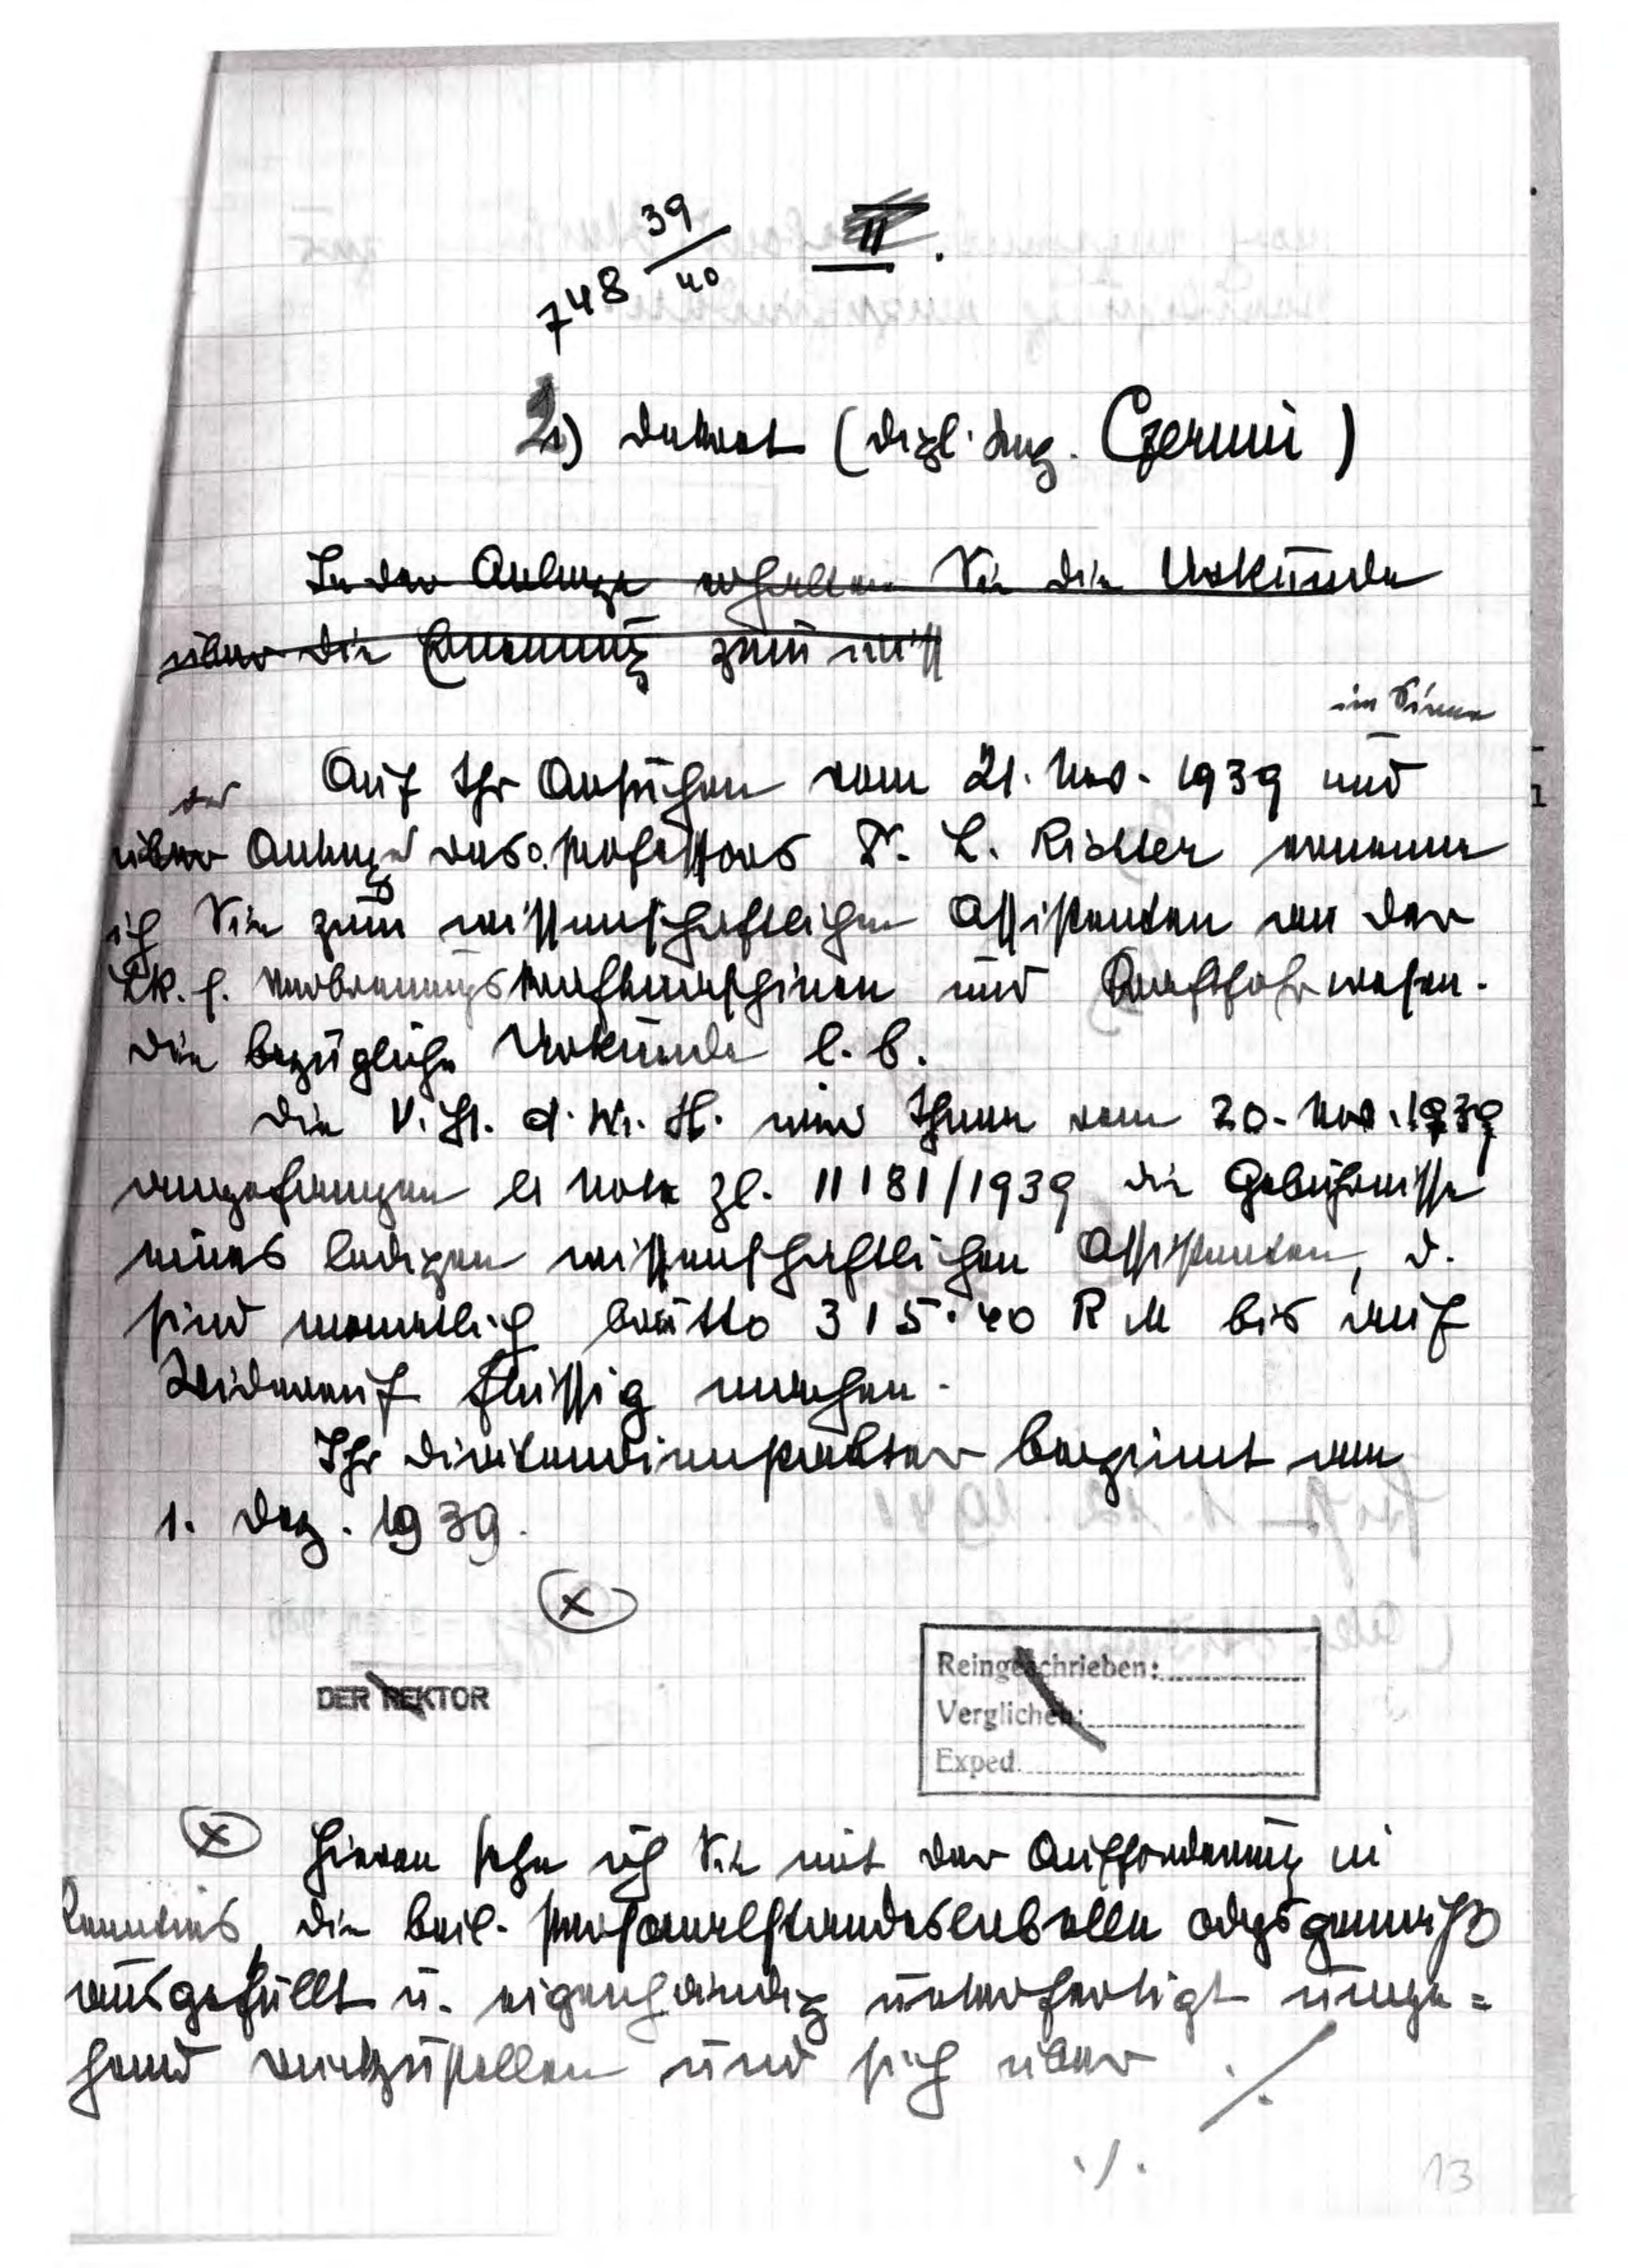 748 39/40 II.
2) Dekret (Dipl. Ing. Czermi)
In der Anlage erhalten Sie die Urkunde
über die Ernennung zum wiss
im Sinne
Auf Ihr Ansuchen vom 21. Nov. 1939 und
der
über Antrag des o. Professors Dr. L. Richter ernenne
ich Sie zum wissenschaftlichen Assistenten an der
Lk. f. Verbrennungskraftmaschinen und Kraftfahrwesen.
Die bezügliche Urkunde l. b.
Die V. St. d. W. H. wird Ihnen vom 20. Nov. 1939
angefangen lt Note Zl. 11181/1939 die Gebührnisse
eines ledigen wissenschaftlichen Assistenten, d.
sind monatlich brutto 315.40 RM bis auf
Widerruf flüssig machen.
Ihr Diätendienstalter beginnt am
1. Dez. 1939.
x
DER REKTOR
Reingeschrieben:
Verglichen:
Exped.
x Hievon setze ich Sie mit der Aufforderung in
Kenntnis, die beil. Personalstandestabelle ordgsgemäß
ausgefüllt u. eigenhändig unterfertigt umge=
hend rückzustellen und sich über ./.
./.
13